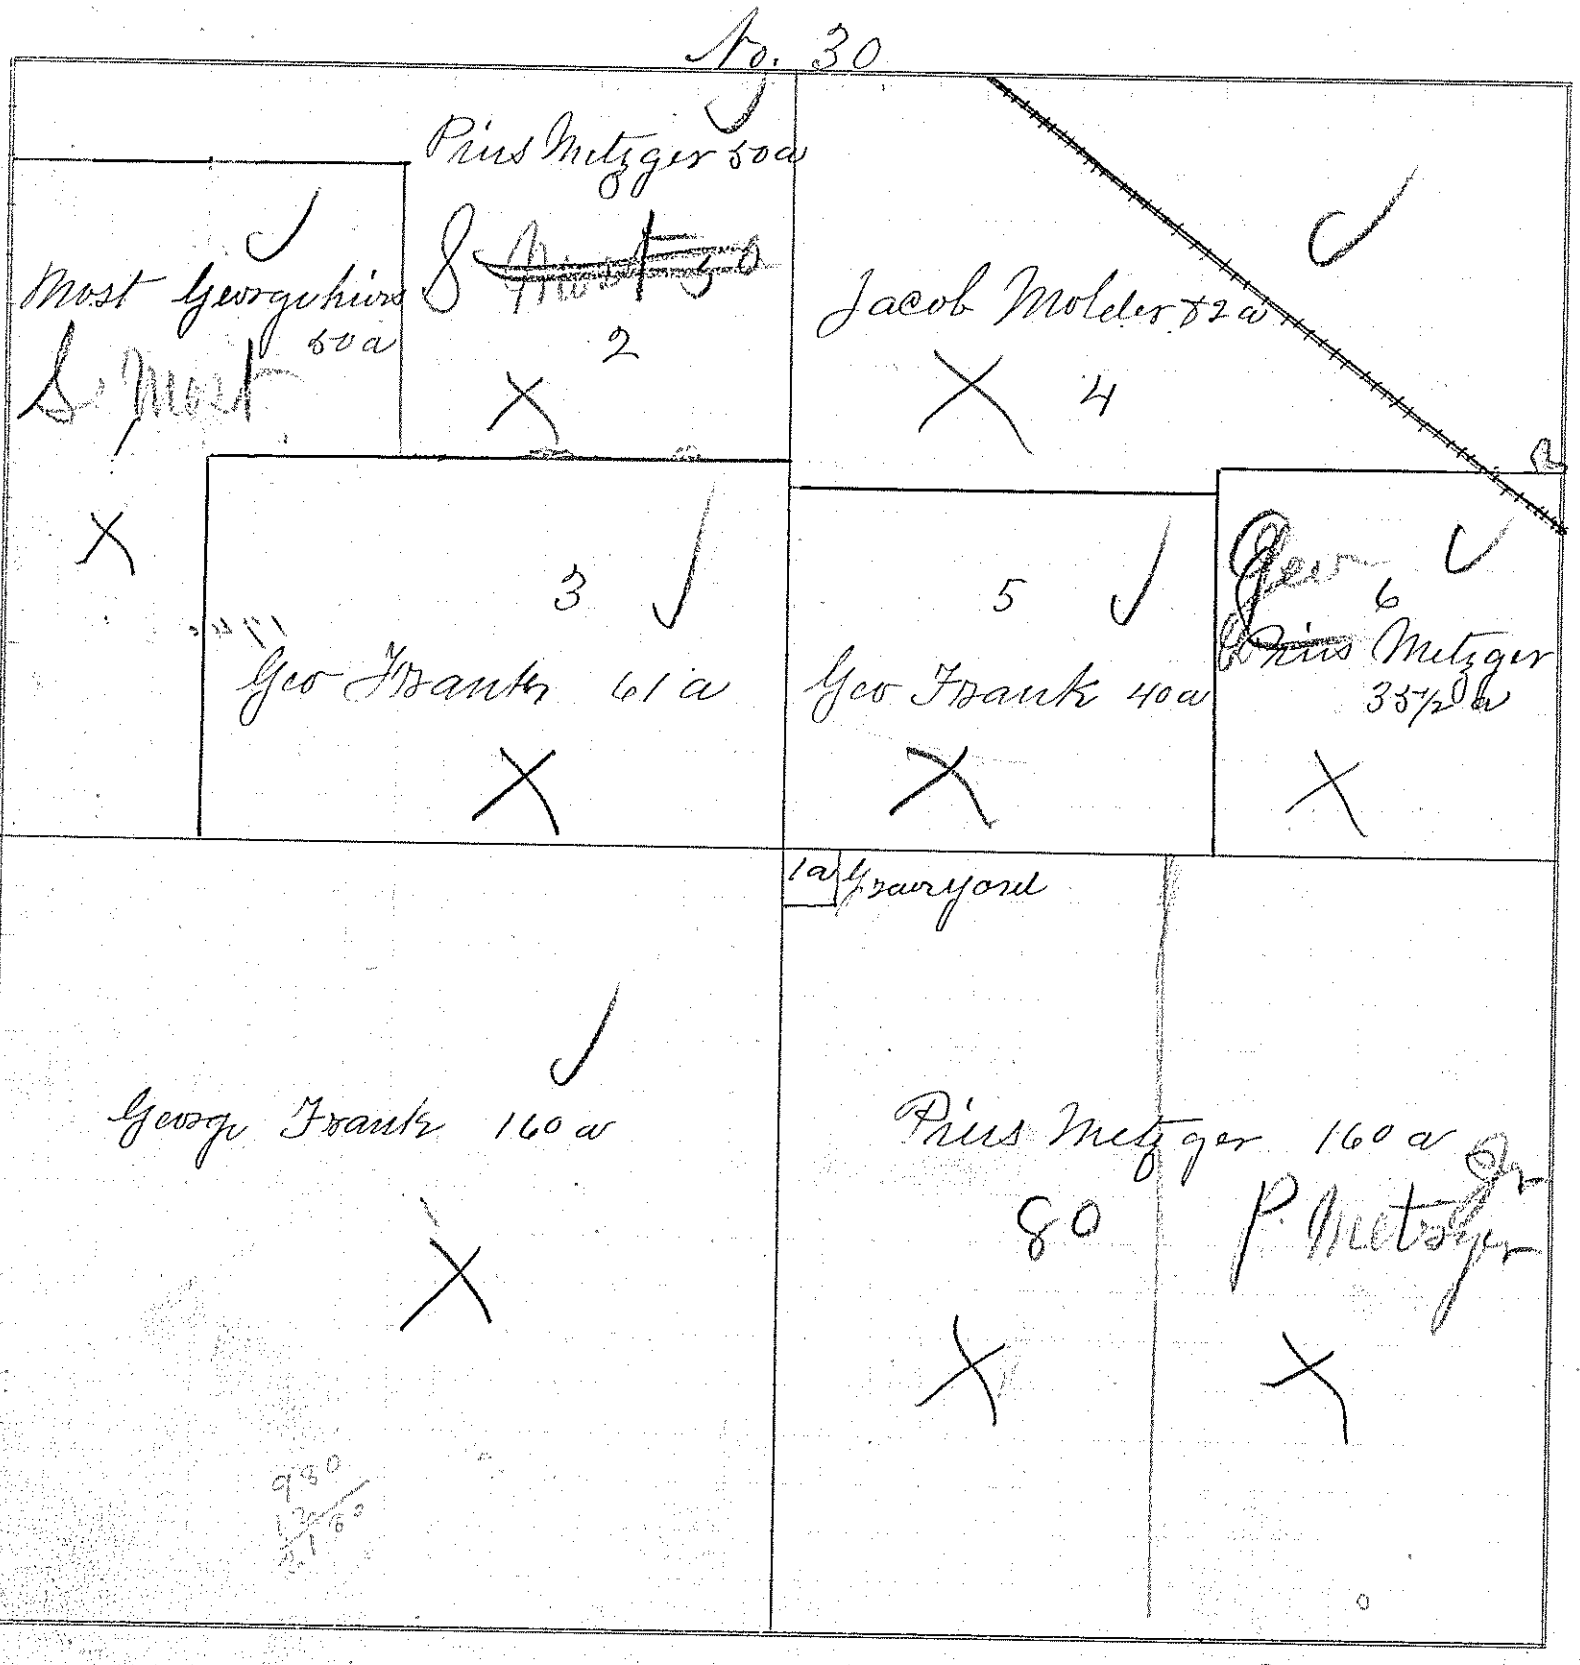 No. 30
Pius Metzger 50a
S Most 50
2
Most George heirs
50a
S. Most
Jacob Molder 82a
4
R
3
Geo Frank 61a
5
Geo Frank 40a
Geo
6
Pius Metzger
35 1/2 a
1a Graveyard
George Frank 160a
Pius Metzger 160a
80
P. Metzger
980